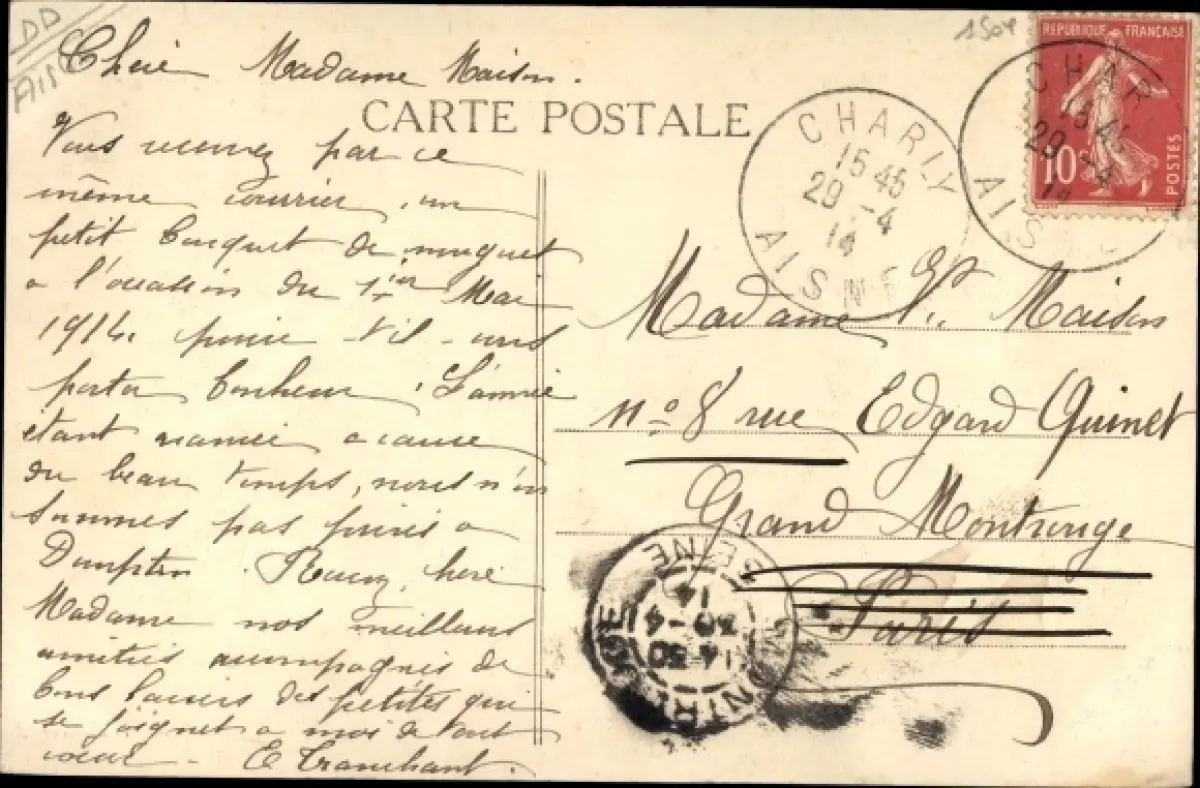 DD
1504
Chère Madame Maison.
CARTE POSTALE
Vous recevrez par ce
même courrier, un
petit bouquet de muguet
a l'occasion du 1er Mai
1914. puisse-t'il vous
porter bonheur. L'année
étant avancée a cause
du beau temps, nous n'en
sommes pas privés a
Dampten. Recevez, chère
Madame nos meilleurs
amitiés accompagnés de
bons baisers des petites qui
se joignet a moi de tout
coeur - E Tranchant.
REPUBLIQUE FRANÇAISE
10c
POSTES
CHARLY
15 45
29 -4
14
AISNE
CHAR
15 45
29 -4
14
AIS
Madame Ve. Maison
no 8 rue Edgard Quinet
Grand Montrouge
Paris
MONTROUGE
14 30
30 -4
14
SEINE